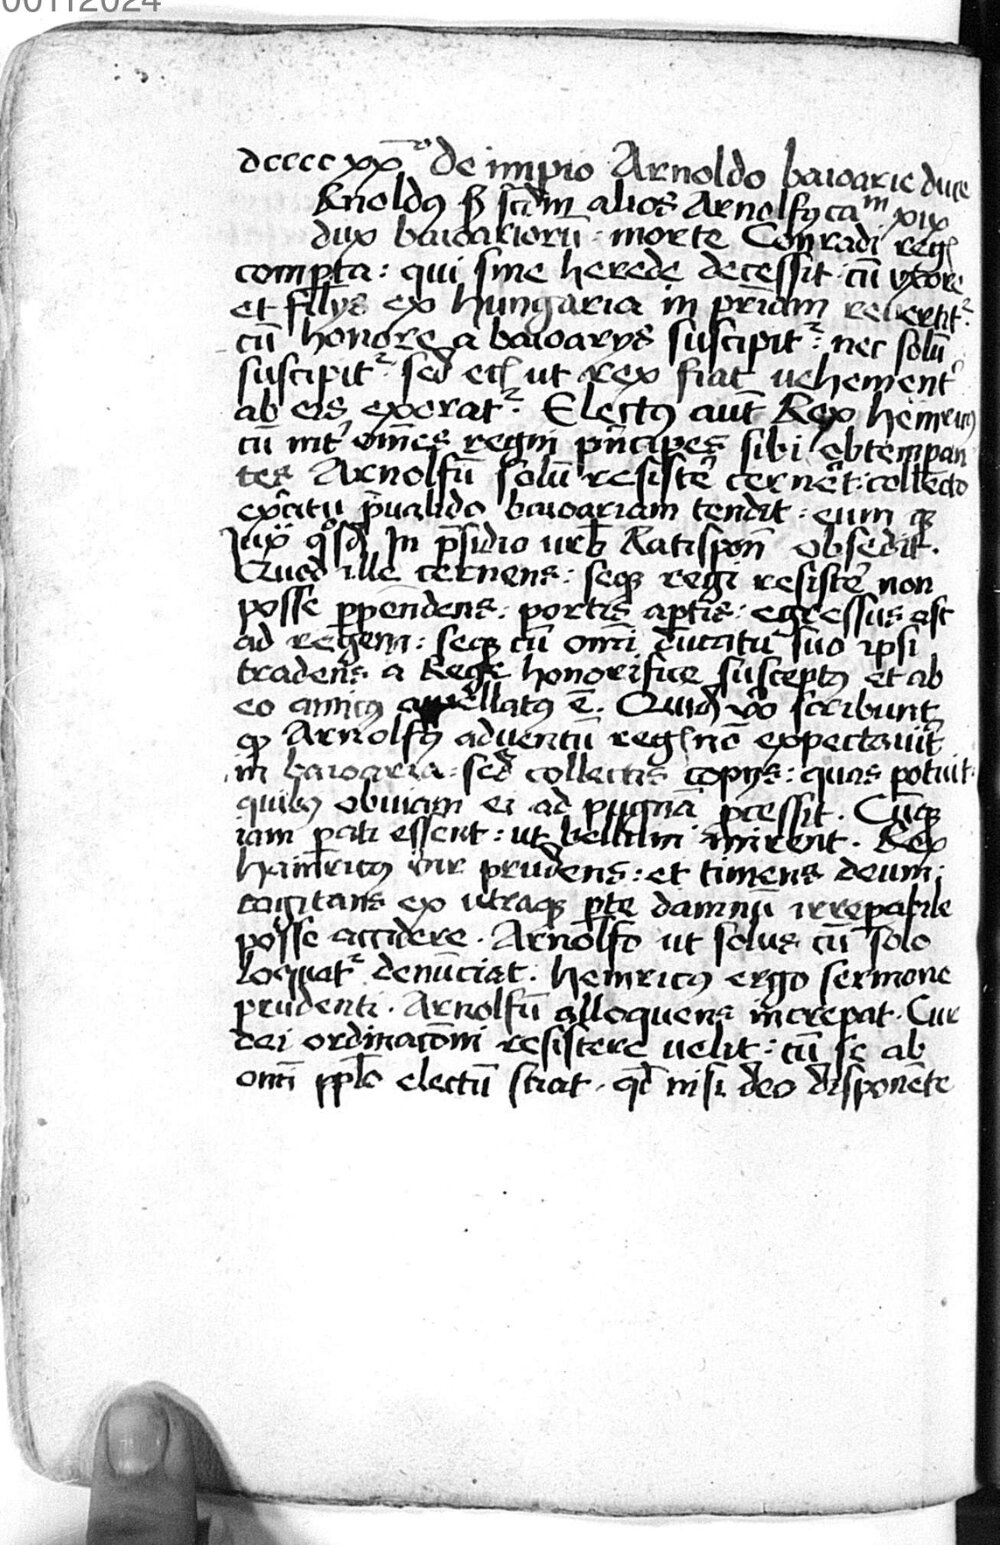 00112024
dcccc xx͞ᵒ de impio Arnoldo baioarie duce
Rnoldꝯ ẜ scd̃m alios Arnolfꝯ caᵐ xix
dux baioarioru᷃ · morte Conradi reg̃
comp̱ta : qui sine herede decessit · cũ vxore
et filijs ex hungaria in pr̃iam revertit᷑
cũ honore a baioarijs suscipit᷑ : nec solũ
suscipit᷑ sed eciã ut rex fiat vehement᷑
ab eis exorat᷑ . Electꝯ aut̃ Rex heinricꝯ
cũ int᷑ om̃es regni pñcipes sibi obtemp̱an
tes Arnolfũ solũ resiste᷑ cerne᷑t : collecto
exc᷑citu p̃ualido baioariam tendit : eum qꝫ
in p̃sidio urb̃ Ratispon̄ obsedit .
Quod ille cernens : seqꝫ regi resiste᷑ non
posse p̱pendens : portis ap̱tis : egressus est
ad regem : seqꝫ cũ om̃i ducatu suo ipsi
tradens a Rege honorifice susceptꝯ et ab
eo amicꝯ appellatꝯ ē . Quidã v᷑o scribunt
qꝫ Arnolfꝯ adventũ reg̃ nō expectavit
in baioaria : sed collectis copijs : quas potuit
quibꝯ obviam ei ad pugnã p̱cessit . Cũqꝫ
iam p̱ati essent : ut bellum inirent . Rex
hainricꝯ vir prudens : et timens deum :
cogitans ex utraqꝫ p̱te damnũ irrep̱abile
posse accidere . Arnolfo ut solus cũ solo
loquat᷑ denũciat . heinricꝯ ergo sermone
prudenti . Arnolfũ alloquens increpat . Cur
dei ordinacõni resistere velit : cũ se ab
om̃i pp̃lo electũ sciat . qd̃ nisi deo disponẽte